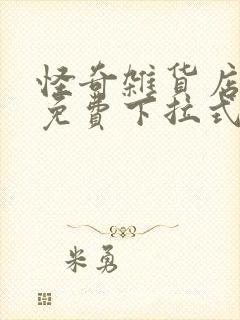 怪奇雑貨店
免費下拉式
米勇